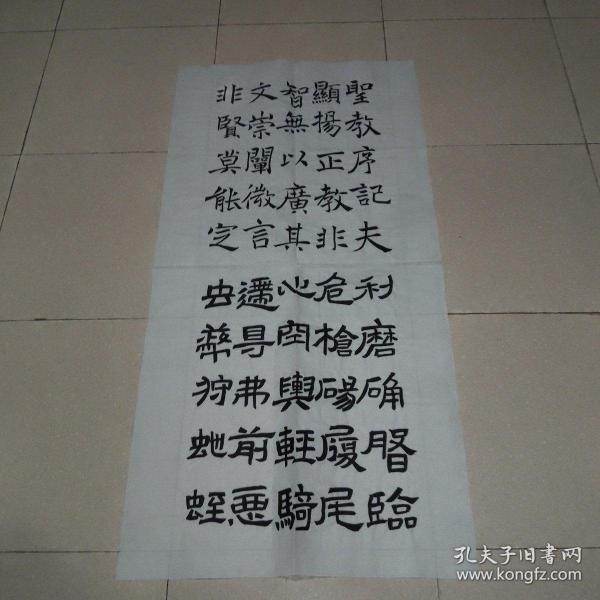 聖教序記夫
顯揚正教非
智無以廣其
文崇闡微言
非賢莫能定
利磨确臨
危槍碭履尾
心空輿輕騎
遰㝵弗前惡
虫狩虵蛭
孔夫子旧書网
www.kongfz.com